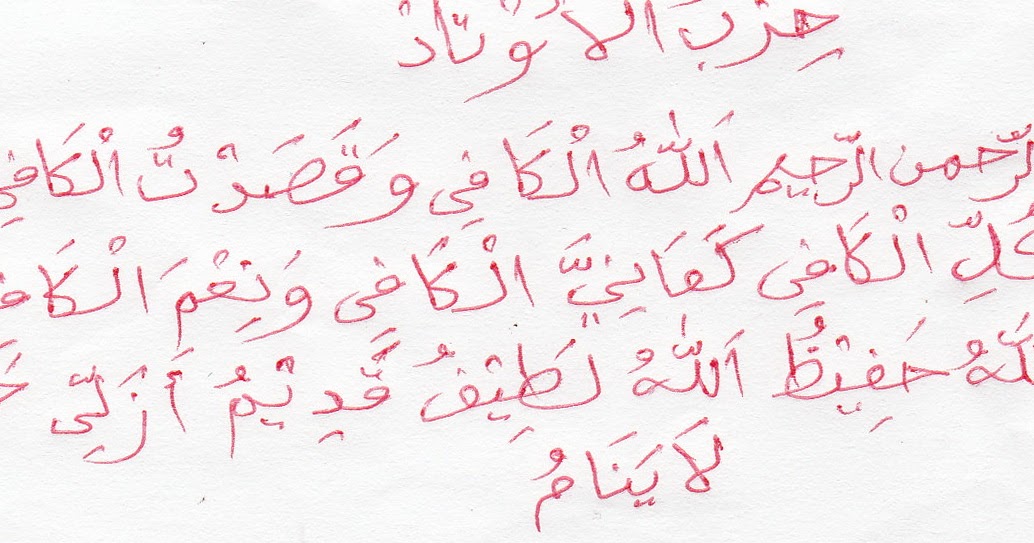 حِزْبُ الْاَوْتَادْ
الرّحمن الرّحيم اَللّٰهُ الْكَافِي وَقَصَدْتُ الْكَافِي
لِكُلِّ الْكَافِى كَفَانِيَّ الْكَافِى وَنِعْمَ الْكَافِى
اَللّٰهُ حَفِيْظُ اَللّٰهُ لَطِيْفُ قَّدِيْمُ أَزَلِىّ
لَا يَنَامُ